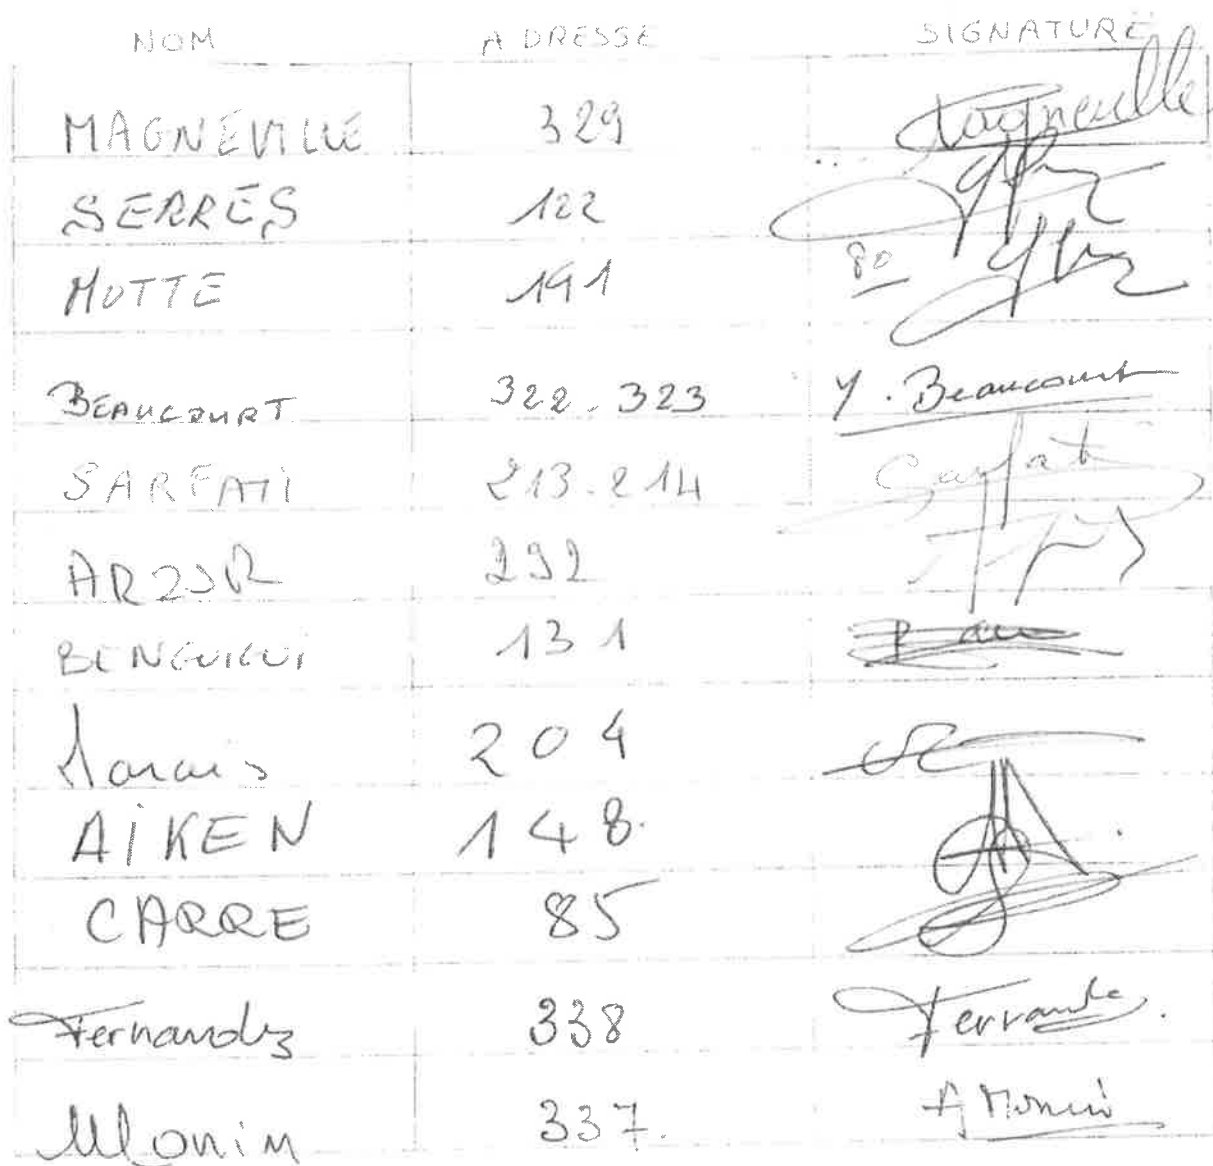 NOM ADRESSE SIGNATURE
MAGNEVILLE 329 Magneville
SERRES 122
MOTTE 191 80
BEAUCOURT 322.323 Y. Beaucourt
SARFATI 213.214 Sarfati
292
BENGUIGUI 131
Marais 204
AIKEN 148.
CARRE 85
Fernandez 338
Monin 337. A Monin